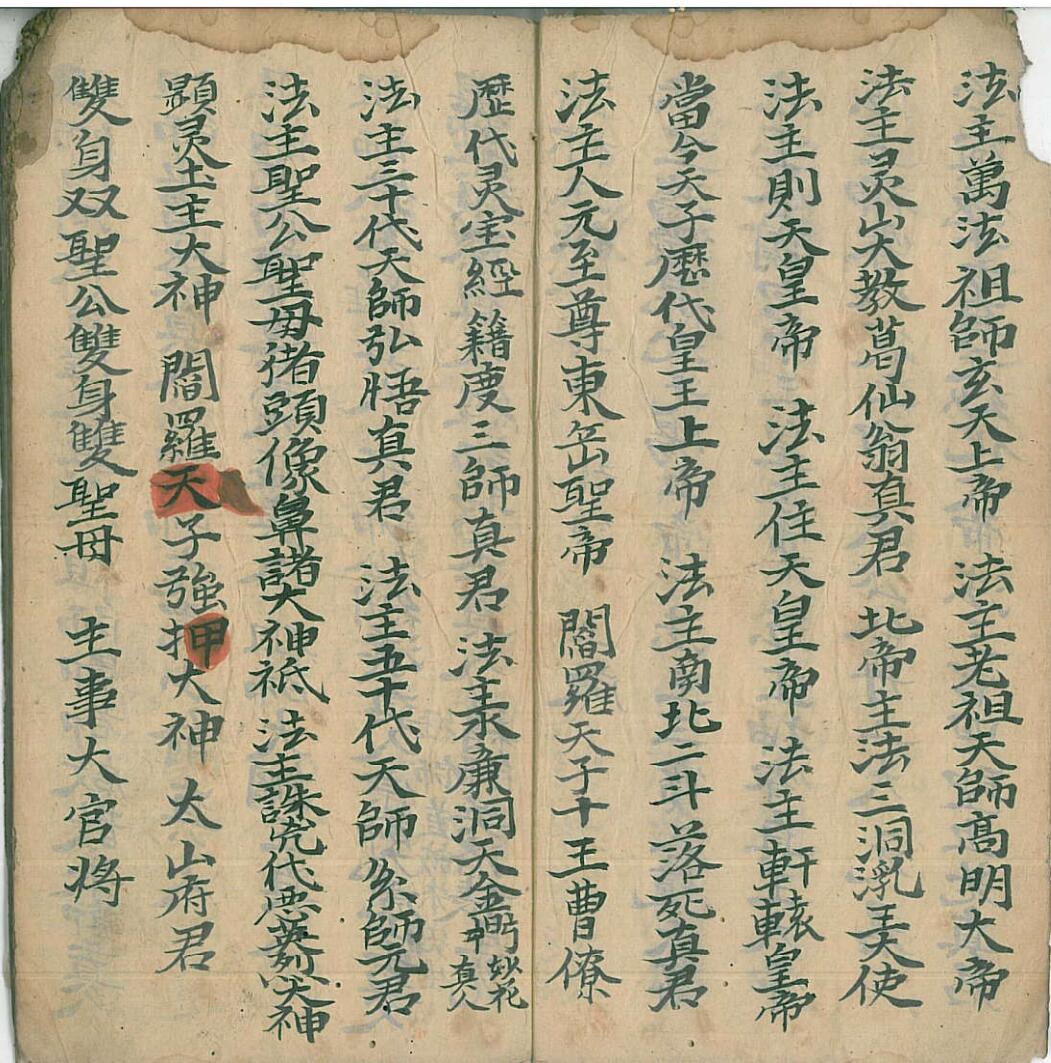 法主萬法祖師玄天上帝 法主老祖天師高明大帝
法主灵山大教葛仙翁真君 北帝主法三洞渾王天使
法主則天皇帝 法主住天皇帝 法主軒轅皇帝
當今天子歷代皇王上帝 法主南北二斗落死真君
法主人元至尊東岳聖帝 閻羅天子十王曹僚
歷代灵宝經籍度三師真君 法主永廉洞天金妙花真人
法主三十代天師弘悟真君 法主五十代天師系師元君
法主聖公聖毋猪頭像鼻諸大神祇 法主誅代大神
顕灵土主大神 閻羅天子強押大神 太山府君
雙身双聖公雙身雙聖母 主事大官将